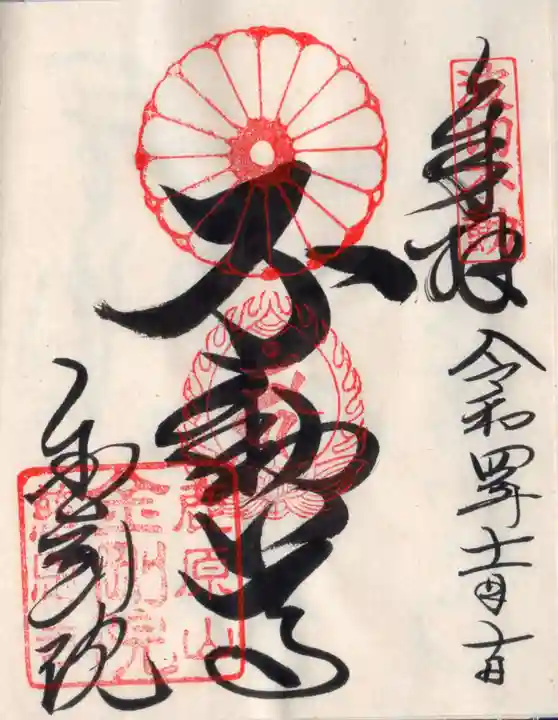 奉拝
波切不動
令和四年十一月十日
不動尊
金剛院
鹿原山
金剛院